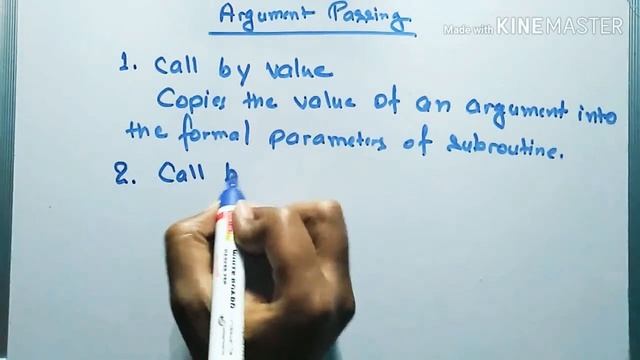 Argument Passing
Made with KINEMASTER
1. Call by value
Copies the value of an argument into
the formal parameters of subroutine.
2. Call b
WHITE BOARD